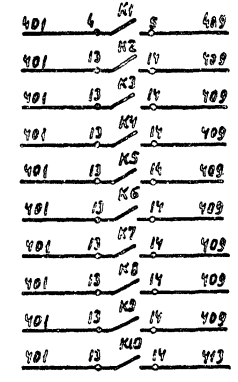 401 4 K1 5 409
401 13 K2 14 409
401 13 K3 14 409
401 13 K4 14 409
401 13 K5 14 409
401 13 K6 14 409
401 13 K7 14 409
401 13 K8 14 409
401 13 K9 14 409
401 13 K10 14 413